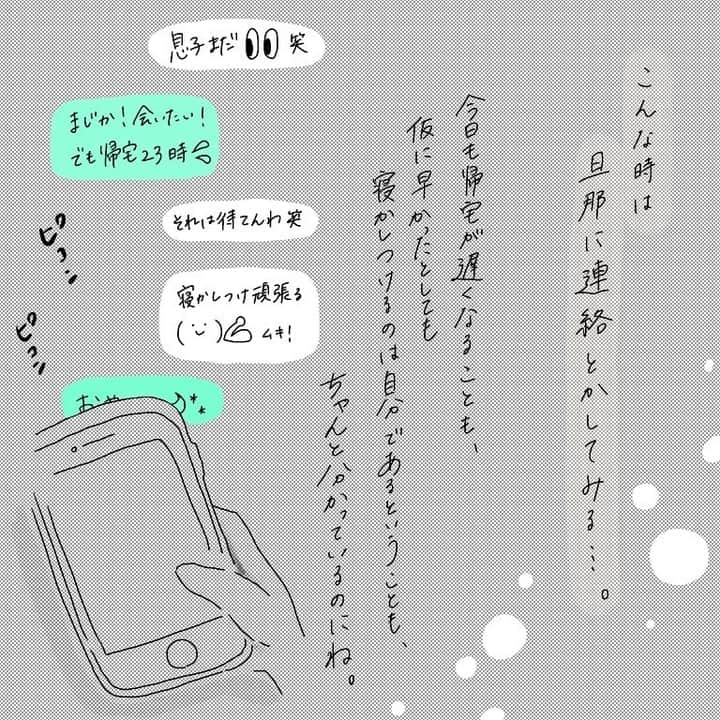 こんな時は
旦那に連絡とかしてみる…。
今日も帰宅が遅くなることも、
仮に早かったとしても
寝かしつけるのは自分であるということも、
ちゃんと分かっているのにね。
息子まだ👀笑
まじか!会いたい!
でも帰宅23時💦
それは待てんわ笑
寝かしつけ頑張る
(¨̮)💪ムキ!
おや
ピコン
ピコン